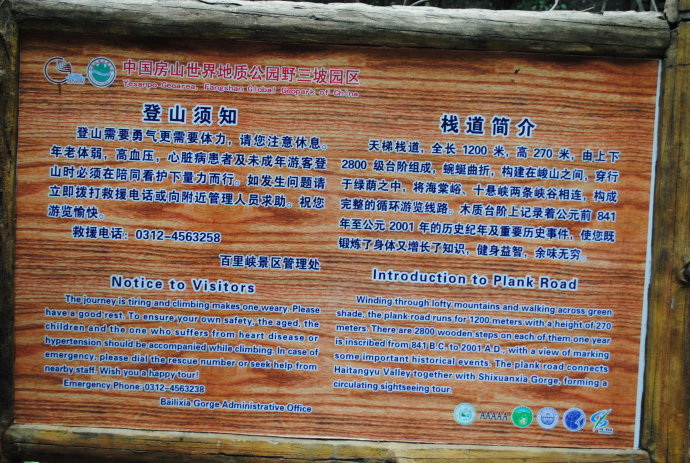 中国房山世界地质公园野三坡园区
Yesanpo Geoarea, Fangshan Global Geopark of China
登山须知
登山需要勇气更需要体力，请您注意休息。
年老体弱，高血压，心脏病患者及未成年游客登
山时必须在陪同看护下量力而行。如发生问题请
立即拨打救援电话或向附近管理人员求助。祝您
游览愉快。
救援电话：0312-4563258
百里峡景区管理处
Notice to Visitors
The journey is tiring and climbing makes one weary. Please
have a good rest. To ensure your own safety, the aged, the
children and the one who suffers from heart disease or
hypertension should be accompanied while climbing. In case of
emergency, please dial the rescue number or seek help from
nearby staff. Wish you a happy tour!
Emergency Phone: 0312-4563238
Bailixia Gorge Administrative Office
栈道简介
天梯栈道，全长 1200 米，高 270 米，由上下
2800 级台阶组成，蜿蜒曲折，构建在峻山之间，穿行
于绿荫之中，将海棠峪、十悬峡两条峡谷相连，构成
完整的循环游览线路。木质台阶上记录着公元前 841
年至公元 2001 年的历史纪年及重要历史事件，使您既
锻炼了身体又增长了知识，健身益智，余味无穷。
Introduction to Plank Road
Winding through lofty mountains and walking across green
shade, the plank road runs for 1200 meters with a height of 270
meters. There are 2800 wooden steps on each of them one year
is inscribed from 841 B.C. to 2001 A.D., with a view of marking
some important historical events. The plank road connects
Haitangyu Valley together with Shixuanxia Gorge, forming a
circulating sightseeing tour.
AAAAA